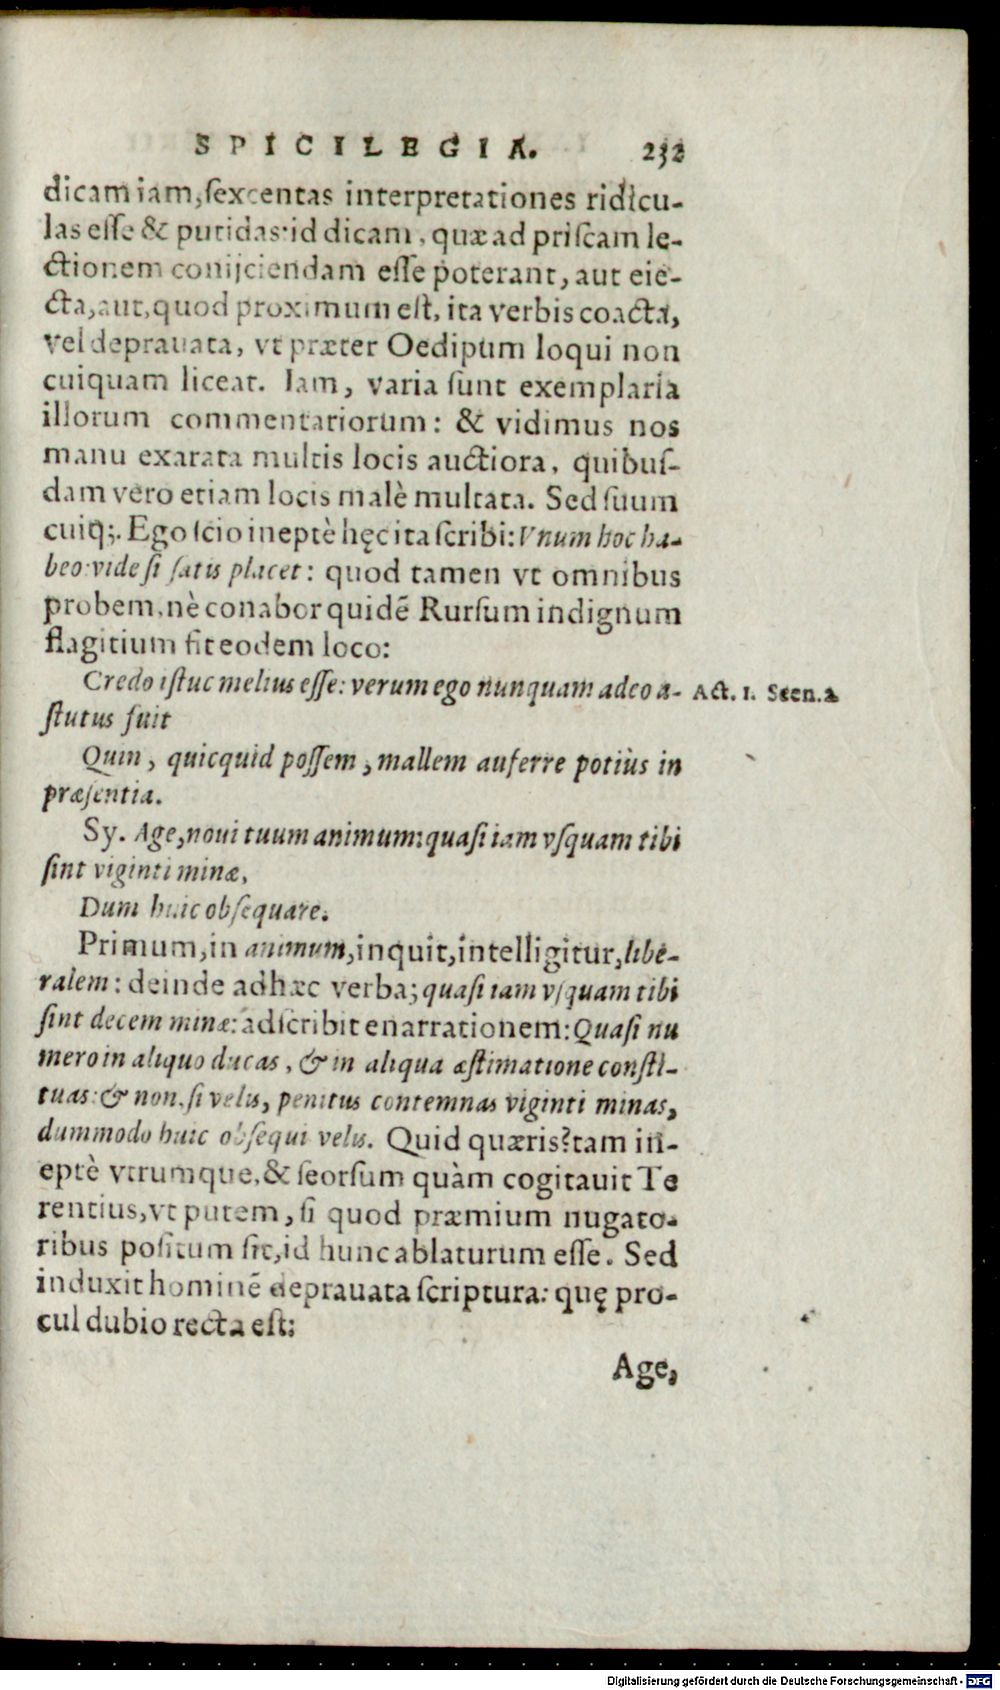 SPICILEGIA. 232
dicam iam, ſexcentas interpretationes ridicu-
las eſſe & putidas: id dicam, quæ ad priſcam le-
ctionem conijciendam eſſe poterant, aut eie-
cta, aut, quod proximum eſt, ita verbis coacta,
vel deprauata, vt præter Oedipum loqui non
cuiquam liceat. Iam, varia ſunt exemplaria
illorum commentariorum: & vidimus nos
manu exarata multis locis auctiora, quibuſ-
dam vero etiam locis malè multata. Sed ſuum
cuiq;. Ego ſcio ineptè hęc ita ſcribi: Vnum hoc ha-
beo: vide ſi ſatis placet: quod tamen vt omnibus
probem, nè conabor quidē Rurſum indignum
flagitium fit eodem loco:
Credo iſtuc melius eſſe: verum ego nunquam adeo a- Act. 1. Scen. 2
ſtutus fuit
Quin, quicquid poſſem, mallem auferre potiùs in
præſentia.
Sy. Age, noui tuum animum: quaſi iam vſquam tibi
ſint viginti minæ,
Dum huic obſequare.
Primum, in animum, inquit, intelligitur, libe-
ralem: deinde ad hæc verba; quaſi iam vſquam tibi
ſint decem minæ: adſcribit enarrationem: Quaſi nu
mero in aliquo ducas, & in aliqua æſtimatione conſti-
tuas: & non, ſi velis, penitus contemnas viginti minas,
dummodo huic obſequi velis. Quid quæris? tam in-
eptè vtrumque, & ſeorſum quàm cogitauit Te
rentius, vt putem, ſi quod præmium nugato-
ribus poſitum ſit, id hunc ablaturum eſſe. Sed
induxit hominē deprauata ſcriptura: quę pro-
cul dubio recta eſt:
Age,
Digitalisierung gefördert durch die Deutsche Forschungsgemeinschaft - DFG